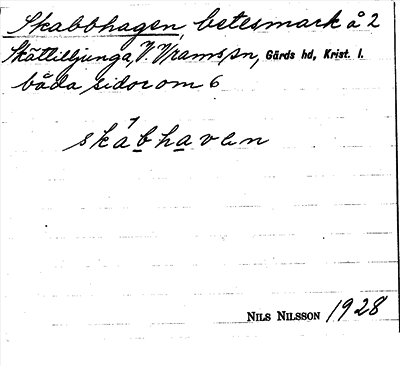 Skabbhagen, betesmark å 2
Skättilljunga, V. Vrams sn, Gärds hd, Krist. l.
båda sidor om 6
skábhaven
NILS NILSSON 1928